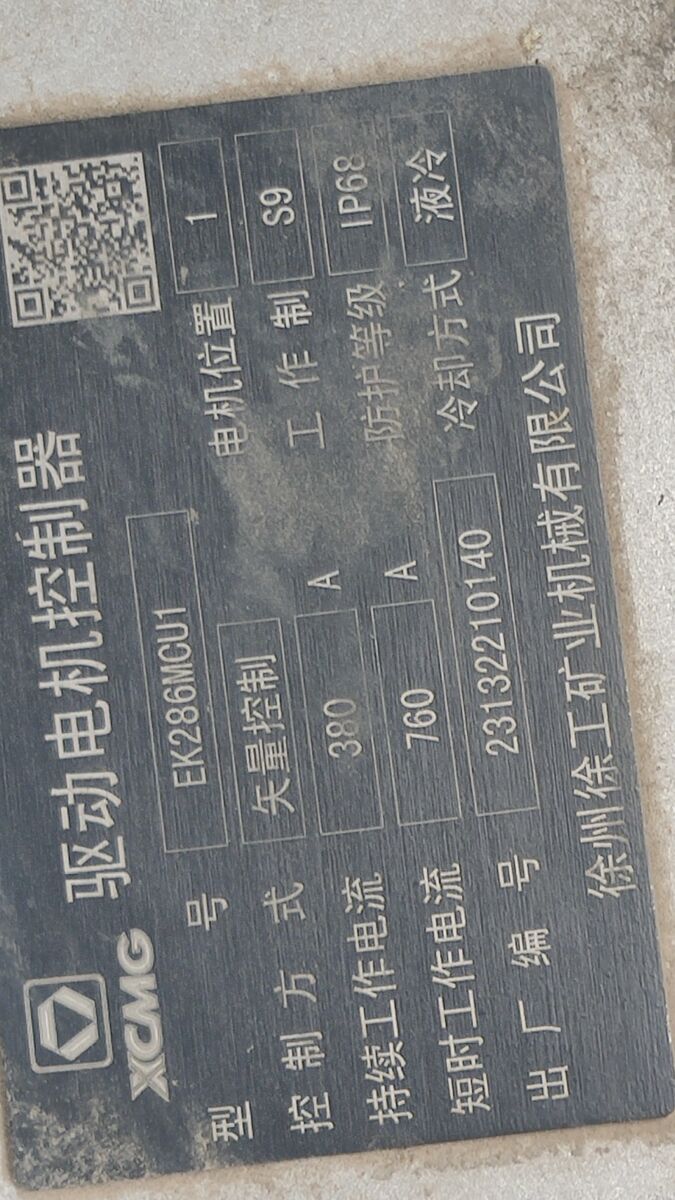 XCMG 驱动电机控制器
型号 EK286MCU1 电机位置 1
控制方式 矢量控制 工作制 S9
持续工作电流 380 A 防护等级 IP68
短时工作电流 760 A 冷却方式 液冷
出厂编号 23132210140
徐州徐工矿业机械有限公司